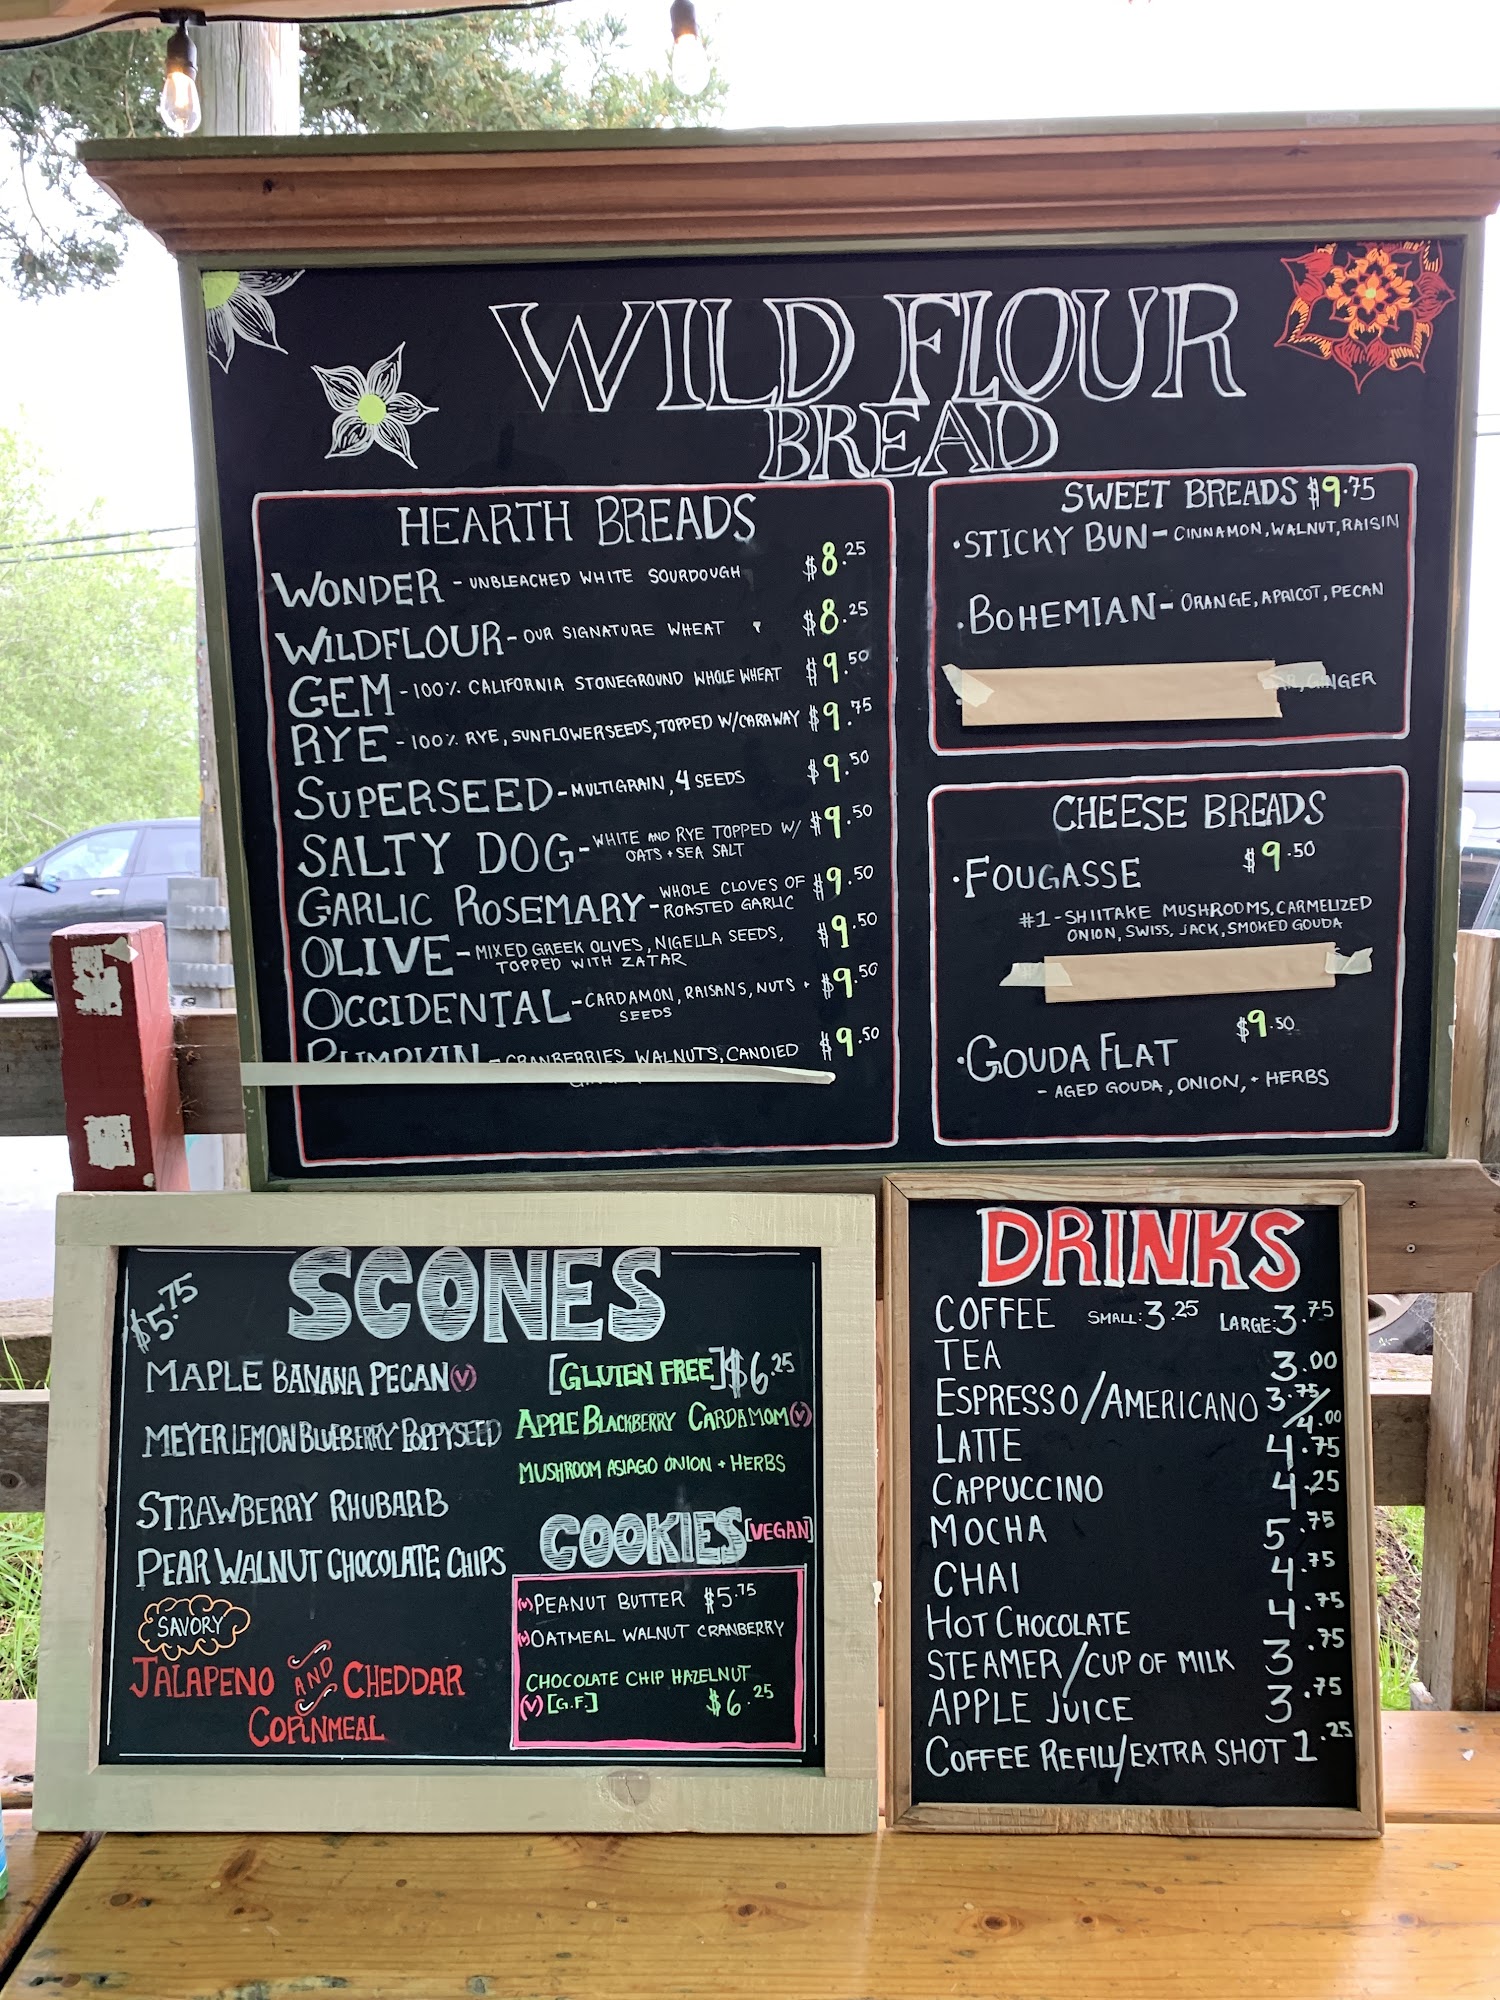 WILD FLOUR
BREAD
HEARTH BREADS
WONDER - UNBLEACHED WHITE SOURDOUGH $8.25
WILDFLOUR - OUR SIGNATURE WHEAT $8.25
GEM - 100% CALIFORNIA STONEGROUND WHOLE WHEAT $9.50
RYE - 100% RYE, SUNFLOWERSEEDS, TOPPED W/CARAWAY $9.75
SUPERSEED - MULTIGRAIN, 4 SEEDS $9.50
SALTY DOG - WHITE AND RYE TOPPED W/ $9.50
OATS + SEA SALT
GARLIC ROSEMARY - WHOLE CLOVES OF $9.50
ROASTED GARLIC
OLIVE - MIXED GREEK OLIVES, NIGELLA SEEDS, $9.50
TOPPED WITH ZATAR
OCCIDENTAL - CARDAMON, RAISANS, NUTS + $9.50
SEEDS
PUMPKIN - CRANBERRIES, WALNUTS, CANDIED $9.50
SWEET BREADS $9.75
·STICKY BUN - CINNAMON, WALNUT, RAISIN
·BOHEMIAN - ORANGE, APRICOT, PECAN
GINGER
CHEESE BREADS
·FOUGASSE $9.50
#1 - SHIITAKE MUSHROOMS, CARMELIZED
ONION, SWISS, JACK, SMOKED GOUDA
·GOUDA FLAT $9.50
- AGED GOUDA, ONION, + HERBS
SCONES
$5.75
MAPLE BANANA PECAN (V)
MEYER LEMON BLUEBERRY POPPYSEED
STRAWBERRY RHUBARB
PEAR WALNUT CHOCOLATE CHIPS
SAVORY
JALAPENO AND CHEDDAR
CORNMEAL
[GLUTEN FREE] $6.25
APPLE BLACKBERRY CARDAMOM (V)
MUSHROOM ASIAGO ONION + HERBS
COOKIES [VEGAN]
(V) PEANUT BUTTER $5.75
(V) OATMEAL WALNUT CRANBERRY
CHOCOLATE CHIP HAZELNUT
(V) [G.F.] $6.25
DRINKS
COFFEE SMALL: 3.25 LARGE: 3.75
TEA 3.00
ESPRESSO/AMERICANO 3.75/4.00
LATTE 4.75
CAPPUCCINO 4.25
MOCHA 5.75
CHAI 4.75
HOT CHOCOLATE 4.75
STEAMER/CUP OF MILK 3.75
APPLE JUICE 3.75
COFFEE REFILL/EXTRA SHOT 1.25